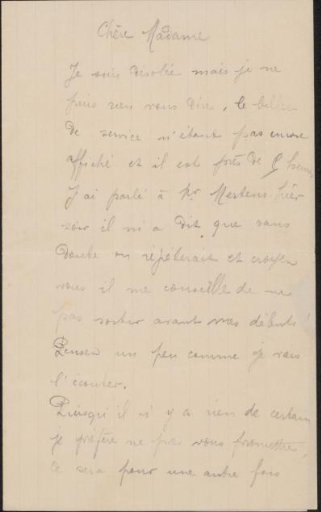 Chère Madame
Je suis désolée mais je ne
puis rien vous dire, le billet
de service n'étant pas encore
affiché et il est près de 9 heures
J'ai parlé à Mr Mertens hier
soir il m'a dit que sans
doute on répéterait et croyez
vous il me conseille de ne
pas sortir avant mes débuts!
Pensez un peu comme je vais
l'écouter.
Puisqu'il n'y a rien de certain
je préfère ne pas vous promettre,
ce sera pour une autre fois